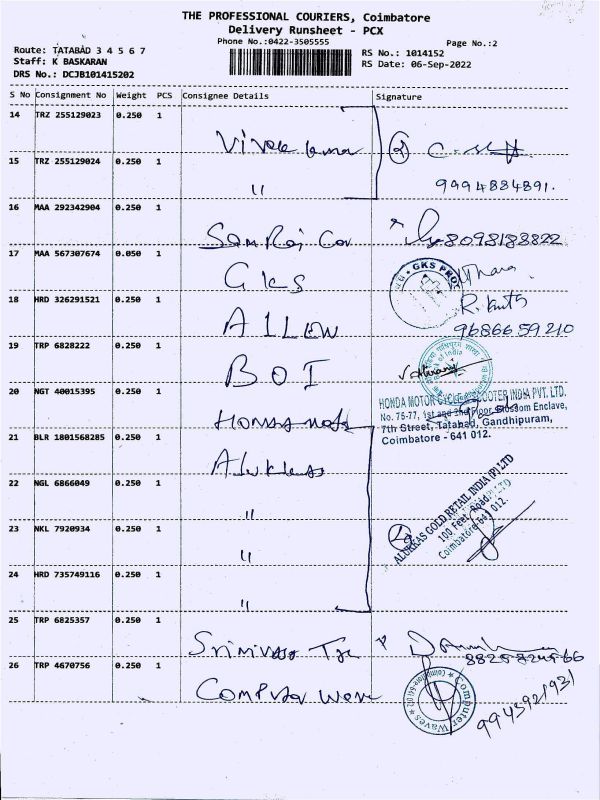 THE PROFESSIONAL COURIERS, Coimbatore
Delivery Runsheet - PCX
Phone No.:0422-3505555
Page No.:2
Route: TATABAD 3 4 5 6 7
Staff: K BASKARAN
DRS No.: DCJB101415202
RS No.: 1014152
RS Date: 06-Sep-2022
S No Consignment No Weight PCS Consignee Details Signature
14 TRZ 255129023 0.250 1
15 TRZ 255129024 0.250 1 "
9994884891.
16 MAA 292342904 0.250 1 8098183822
17 MAA 567307674 0.050 1 GKS
GKS PRO
18 HRD 326291521 0.250 1
9686659210
19 TRP 6828222 0.250 1 BOI
20 NGT 40015395 0.250 1
HONDA MOTOR CYCLE SCOOTER INDIA PVT. LTD.
No. 76-77, 1st and 2nd Floor Blossom Enclave,
7th Street, Tatabad, Gandhipuram,
Coimbatore - 641 012.
21 BLR 1801568285 0.250 1
22 NGL 6866049 0.250 1 "
23 NKL 7920934 0.250 1 "
24 HRD 735749116 0.250 1 "
ALUKKAS GOLD RETAIL INDIA (P) LTD
100 Feet Road,
Coimbatore-641 012.
25 TRP 6825357 0.250 1
26 TRP 4670756 0.250 1 Computer Wave
Computer Waves